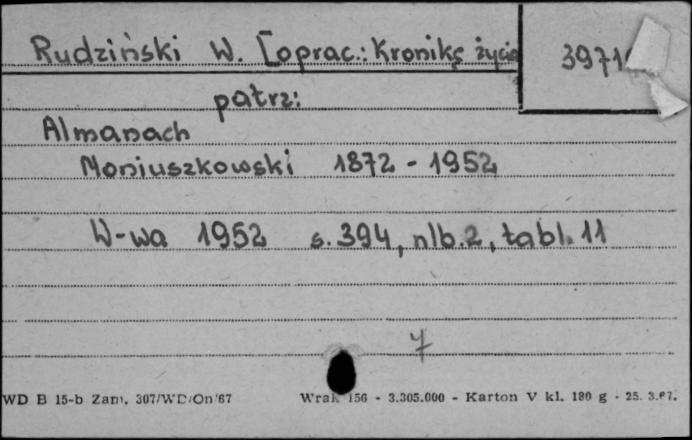 Rudziński W. [oprac.: Kronikę życia
3971
patrz:
Almanach
Moniuszkowski 1872 - 1952
W-wa 1952 s. 394, nlb. 2, tabl. 11
7
WD B 15-b Zam. 307/WD/On/67 Wrak 156 - 3.305.000 - Karton V kl. 180 g - 25. 3.67.